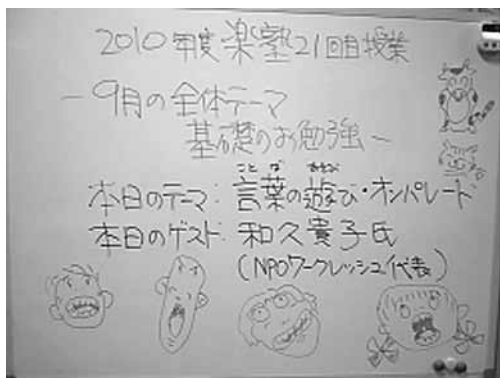 2010年度楽塾21回目授業
-9月の全体テーマ
基礎のお勉強-
ことば あそび
本日のテーマ:言葉の遊び・オンパレード
本日のゲスト:和久貴子氏
(NPOワークレッシュ代表)